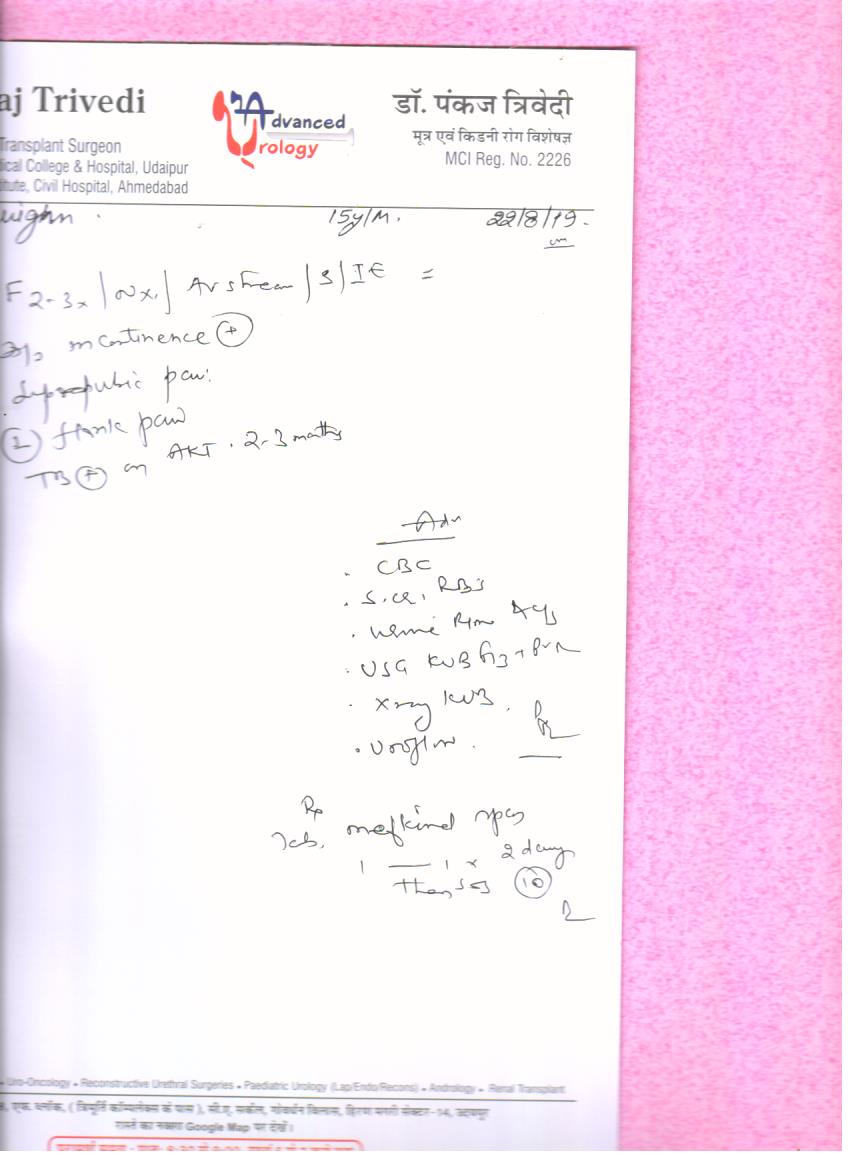 aj Trivedi
Transplant Surgeon
ical College & Hospital, Udaipur
itute, Civil Hospital, Ahmedabad
Advanced
Urology
डॉ. पंकज त्रिवेदी
मूत्र एवं किडनी रोग विशेषज्ञ
MCI Reg. No. 2226
15y/M. 22/8/19.
F 2-3x | Nx. | Av stream | S | I E =
incontinence +
Suprapubic pain
flank pain
TB + on AKT . 2-3 months
Adv
. CBC
. S.Cr, RBS
. Urine R/m
. USG KUB + PVR
. Xray KUB.
. Uroflow.
Rp
Tab. mefkind spas
1 — 1 x 2 days
then SOS 10
Uro-Oncology • Reconstructive Urethral Surgeries • Paediatric Urology (Lap/Endo/Recons) • Andrology • Renal Transplant
एफ. ब्लॉक, ( त्रिमूर्ति कॉम्पलेक्स के पास ), सी.ए. सर्कल, गोवर्धन विलास, हिरण मगरी सेक्टर-14, उदयपुर
रास्ते का नक्शा Google Map पर देखें।